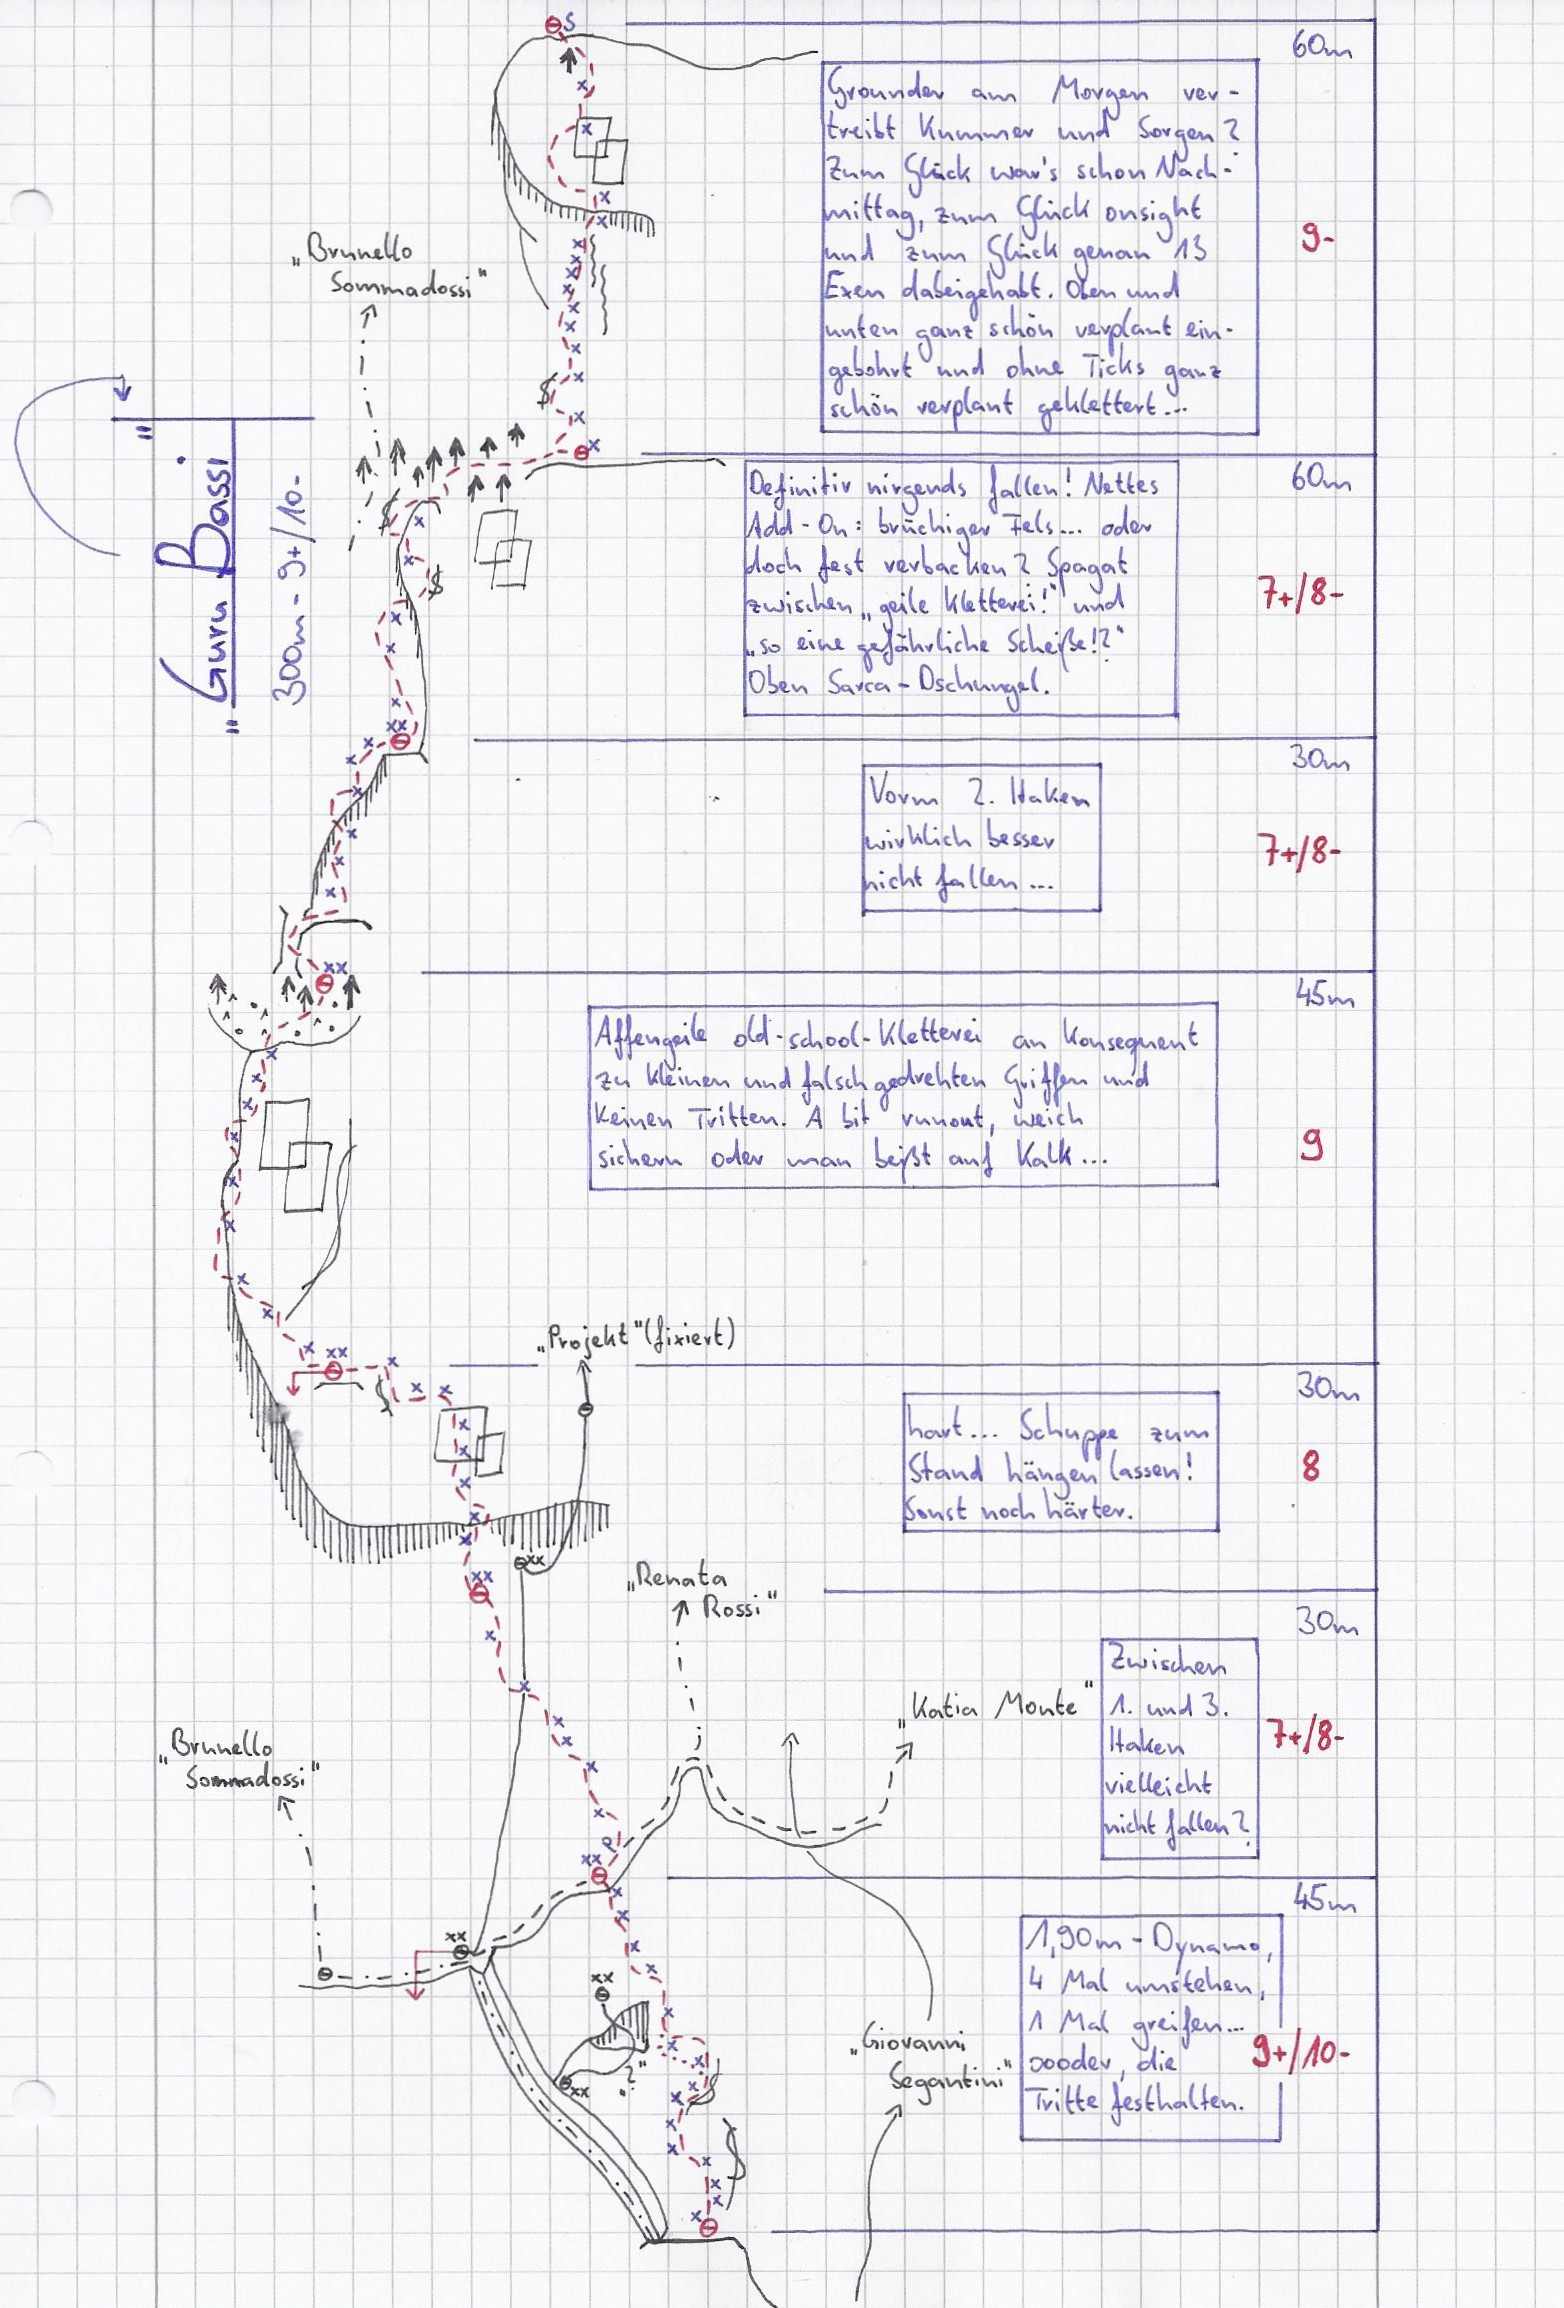 S
60m
Grounder am Morgen ver-
treibt Kummer und Sorgen?
Zum Glück war's schon Nach-
mittag, zum Glück onsight
und zum Glück genau 13
Exen dabeigehabt. Oben und
unten ganz schön verplant ein-
gebohrt und ohne Ticks ganz
schön verplant geklettert...
9-
„Brunello
Sommadossi"
„Guru Bassi"
300m - 9+/10-
60m
Definitiv nirgends fallen! Nettes
Add-On: brüchiger Fels... oder
doch fest verbacken? Spagat
zwischen „geile Kletterei!" und
„so eine gefährliche Scheiße!?"
Oben Sarca-Dschungel.
7+/8-
30m
Vorm 2. Haken
wirklich besser
nicht fallen...
7+/8-
45m
Affengeile old-school-Kletterei an konsequent
zu kleinen und falsch gedrehten Griffen und
keinen Tritten. A bit runout, weich
sichern oder man beißt auf Kalk...
9
„Projekt" (fixiert)
30m
hart... Schuppe zum
Stand hängen lassen!
Sonst noch härter.
8
„Renata
Rossi"
30m
Zwischen
1. und 3.
Haken
vielleicht
nicht fallen?
7+/8-
„Katia Monte"
„Brunello
Sommadossi"
P
45m
1,90m-Dynamo,
4 Mal umstehen,
1 Mal greifen...
oooder, die
Tritte festhalten.
9+/10-
„?"
„Giovanni
Segantini"